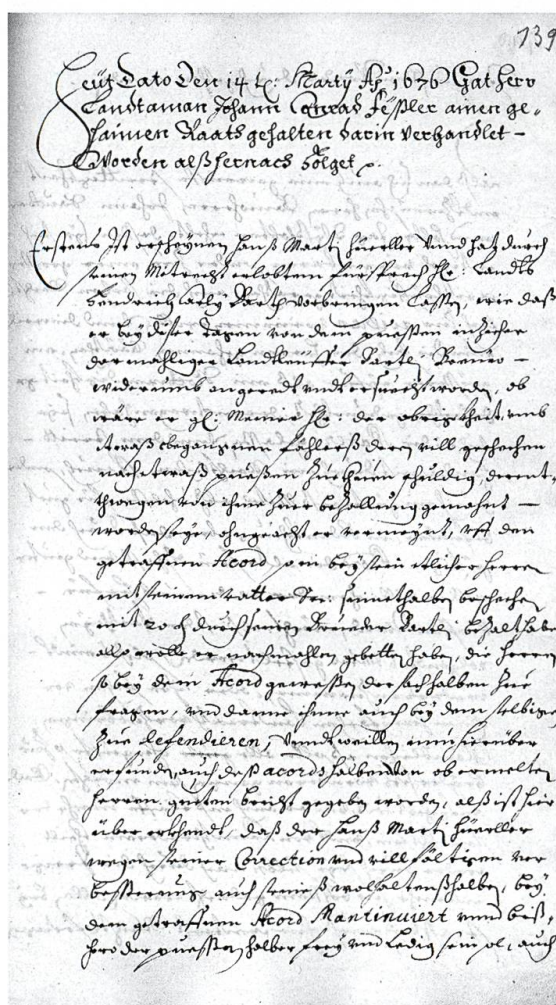 139
Heüt Dato Den 14 t: Martÿ Aº 1676 Hat herr
Landtaman Johann Conrad Feßler ainen ge-
samen Raats gehalten darin verhandlet
Worden alß hernach folget
Erstens Ist erscheynen Hanß Marti hueller vnnd hatz durch
seinen Mitrecht erlobtem fürsprech Hr: Landts
vorbringen Lassen, wie daß
er bey diser tagen von dem
der mahligen
widerumb angeredt vndt ersuecht worden, ob
wäre er gl: Hr: der obrigkheit vmb
etwaß begangnen föhlerß deren vill geschechen
nach etwaß puessen zue thuen schuldig, derent-
thwegen von ihme zuer bezallung gemahnt
worden seye, ohngeacht er vermeynt, vff den
getraffnen Acord so in beysein etlicher herren
mit seinem vatter seinethalben beschechen
mit 20 durch seinen Brueder bezalt habe
also wolle er nachmahlen gebetten haben, die Herren
so bey dem Acord gewessen der sach halben zue
fragen, vnd danne ihnne auch bey dem selbigen
zue defendieren, vnndt weillen nun hierüber
erfunden, auch deß acords halben von ob ermelten
herren gueten bericht gegeben worden, alß ist hier
über erkhendt, daß der Hanß Marti hueller
wegen seiner Correction vnd villfältigen ver
besserung auch seineß wolhaltenß halben, bey
dem getraffnen Acord Mantinuiert vnnd biß
hero der puessen halber frey vnd Ledig sein sol, auch